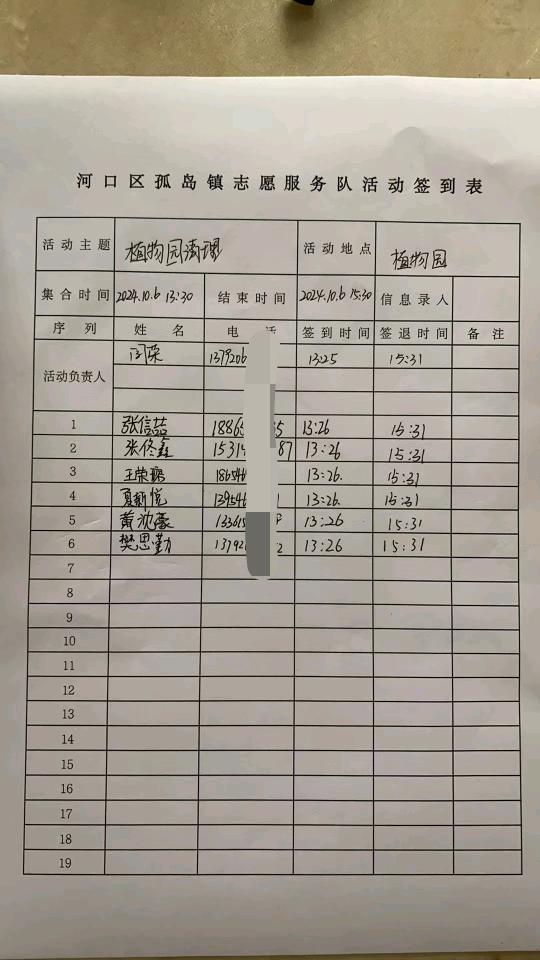 河口区孤岛镇志愿服务队活动签到表
活动主题 植物园清理 活动地点 植物园
集合时间 2024.10.6 13:30 结束时间 2024.10.6 15:30 信息录人
序列 姓名 电话 签到时间 签退时间 备注
活动负责人 闫荣 139206 13:25 15:31
1 张信喆 18865 5 13:26 15:31
2 张佟鑫 15315 87 13:26 15:31
3 王荣 186546 13:26. 15:31
4 夏新悦 139546 1 13:26. 15:31
5 黄 133615 13:26 15:31
6 樊思勤 13792 2 13:26 15:31
7
8
9
10
11
12
13
14
15
16
17
18
19